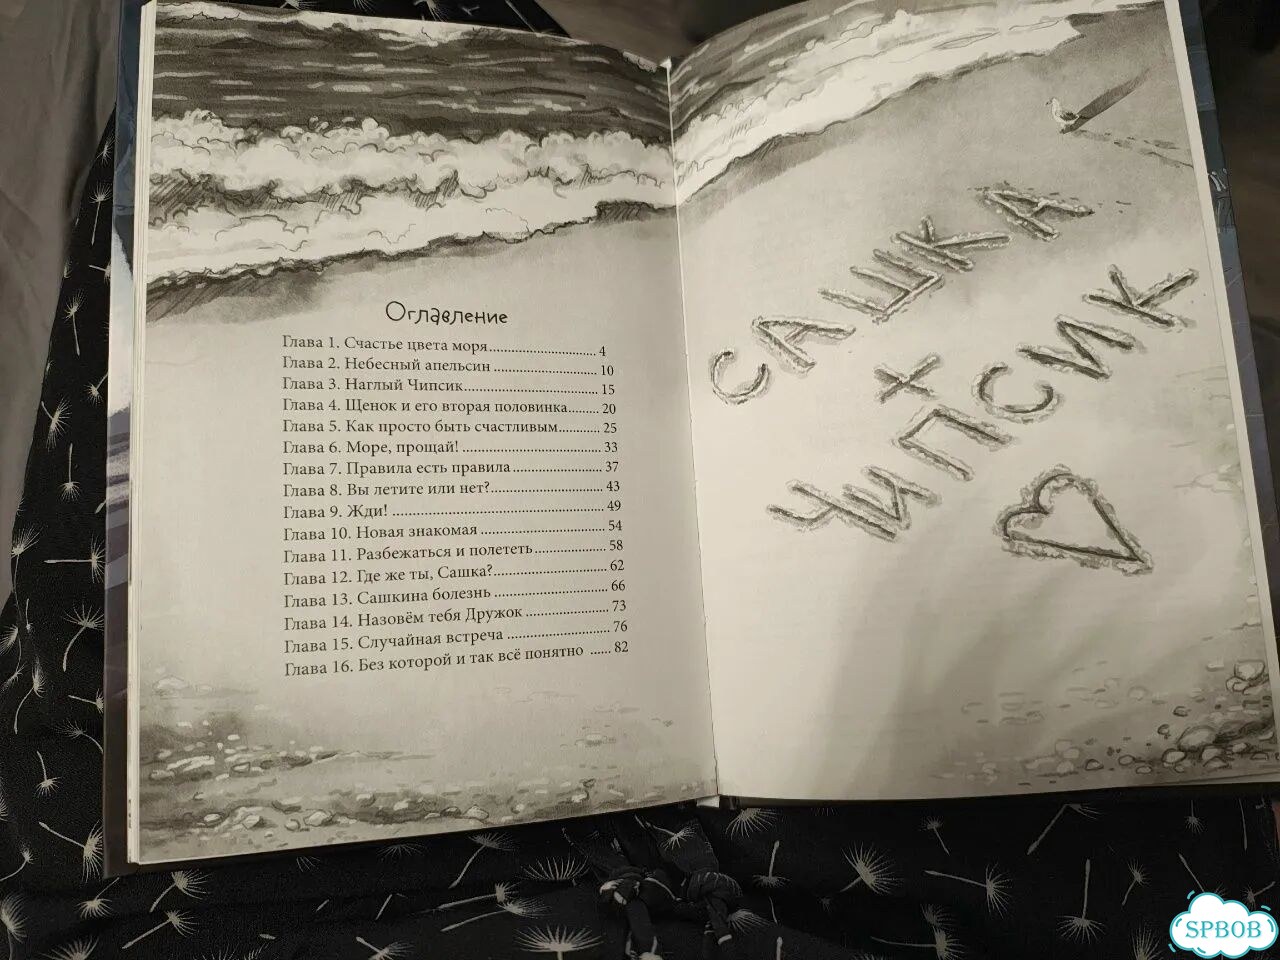 Оглавление
Глава 1. Счастье цвета моря............................ 4
Глава 2. Небесный апельсин........................... 10
Глава 3. Наглый Чипсик.................................. 15
Глава 4. Щенок и его вторая половинка........ 20
Глава 5. Как просто быть счастливым........... 25
Глава 6. Море, прощай!.................................. 33
Глава 7. Правила есть правила....................... 37
Глава 8. Вы летите или нет?............................ 43
Глава 9. Жди! .................................................. 49
Глава 10. Новая знакомая ............................... 54
Глава 11. Разбежаться и полететь.................. 58
Глава 12. Где же ты, Сашка?............................ 62
Глава 13. Сашкина болезнь ............................ 66
Глава 14. Назовём тебя Дружок .................... 73
Глава 15. Случайная встреча ......................... 76
Глава 16. Без которой и так всё понятно ...... 82
САШКА
+
ЧИПСИК
SPBOB